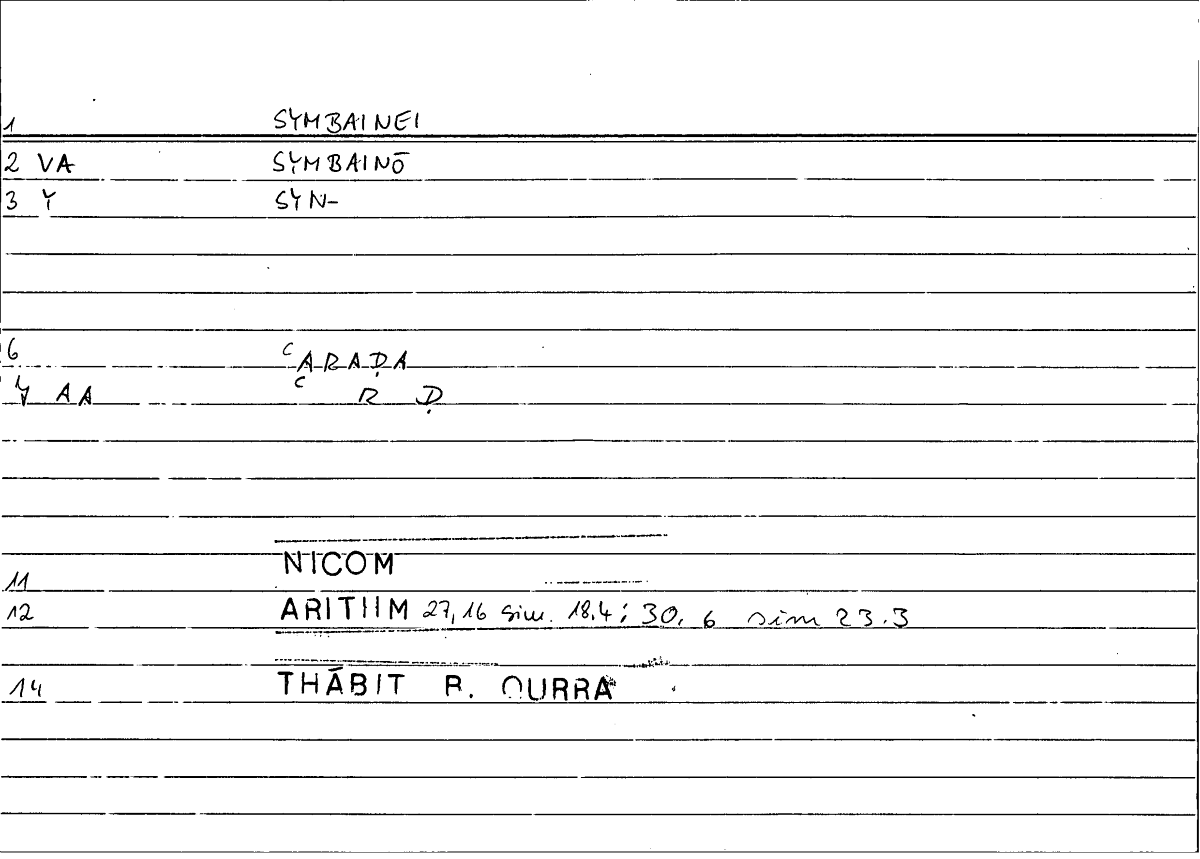 1 SYMBAINEI
2 VA SYMBAINŌ
3 Y SYN-
6 ᶜARAḌA
7 AA ᶜ R Ḍ
11 NICOM
12 ARITHM 27,16 sim. 18,4; 30, 6 sim 23.3
14 THĀBIT B. QURRA